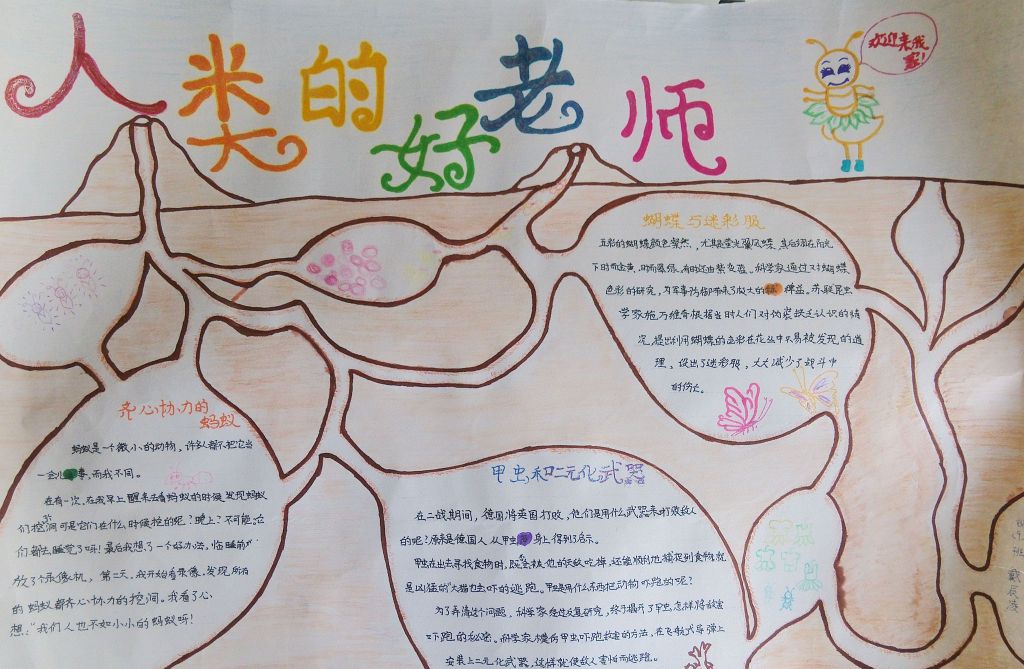 人类的好老师
欢迎来我
家!
蝴蝶与迷彩服
五彩的蝴蝶颜色粲然,尤其是萤光翼凤蝶,其后翅在阳光
下时而金黄,时而翠绿,有时还由紫变蓝。科学家通过对蝴蝶
色彩的研究,为军事防御带来了极大的裨益。苏联昆虫
学家施万维奇根据当时人们对伪装缺乏认识的情
况,提出利用蝴蝶的色彩在花丛中不易被发现的道
理,设出了迷彩服,大大减少了战斗中
的伤亡。
齐心协力的
蚂蚁
蚂蚁是一个微小的动物,许多人都不把它当
一会儿事,而我不同。
在有一次,在我早上醒来去看蚂蚁的时候发现蚂蚁
们挖洞可是它们在什么时候挖的呢?晚上?不可能,它
们都去睡觉了吗!最后我想了一个好办法,临睡前
放了个录像机,第二天,我开始看录像,发现所有
的蚂蚁都齐心协力的挖洞。我看了心
想:“我们人也不如小小的蚂蚁呀!
甲虫和二元化武器
在二战期间,德国将英国打败,他们是用什么武器来打败敌人
的呢?原来是德国人从甲虫身上得到了启示。
甲虫在出去寻找食物时,既
是凶猛的大猫也去吓的逃跑。甲虫是用什么东西把动物吓跑的呢?
为了弄清这个问题,科学家经过反复研究,终于揭开了甲虫怎样将敌害
吓跑的秘密。科学家模仿甲虫吓跑敌害的方法,在飞航式导弹上
安装上二元化武器,这样就使敌人害怕而逃跑。